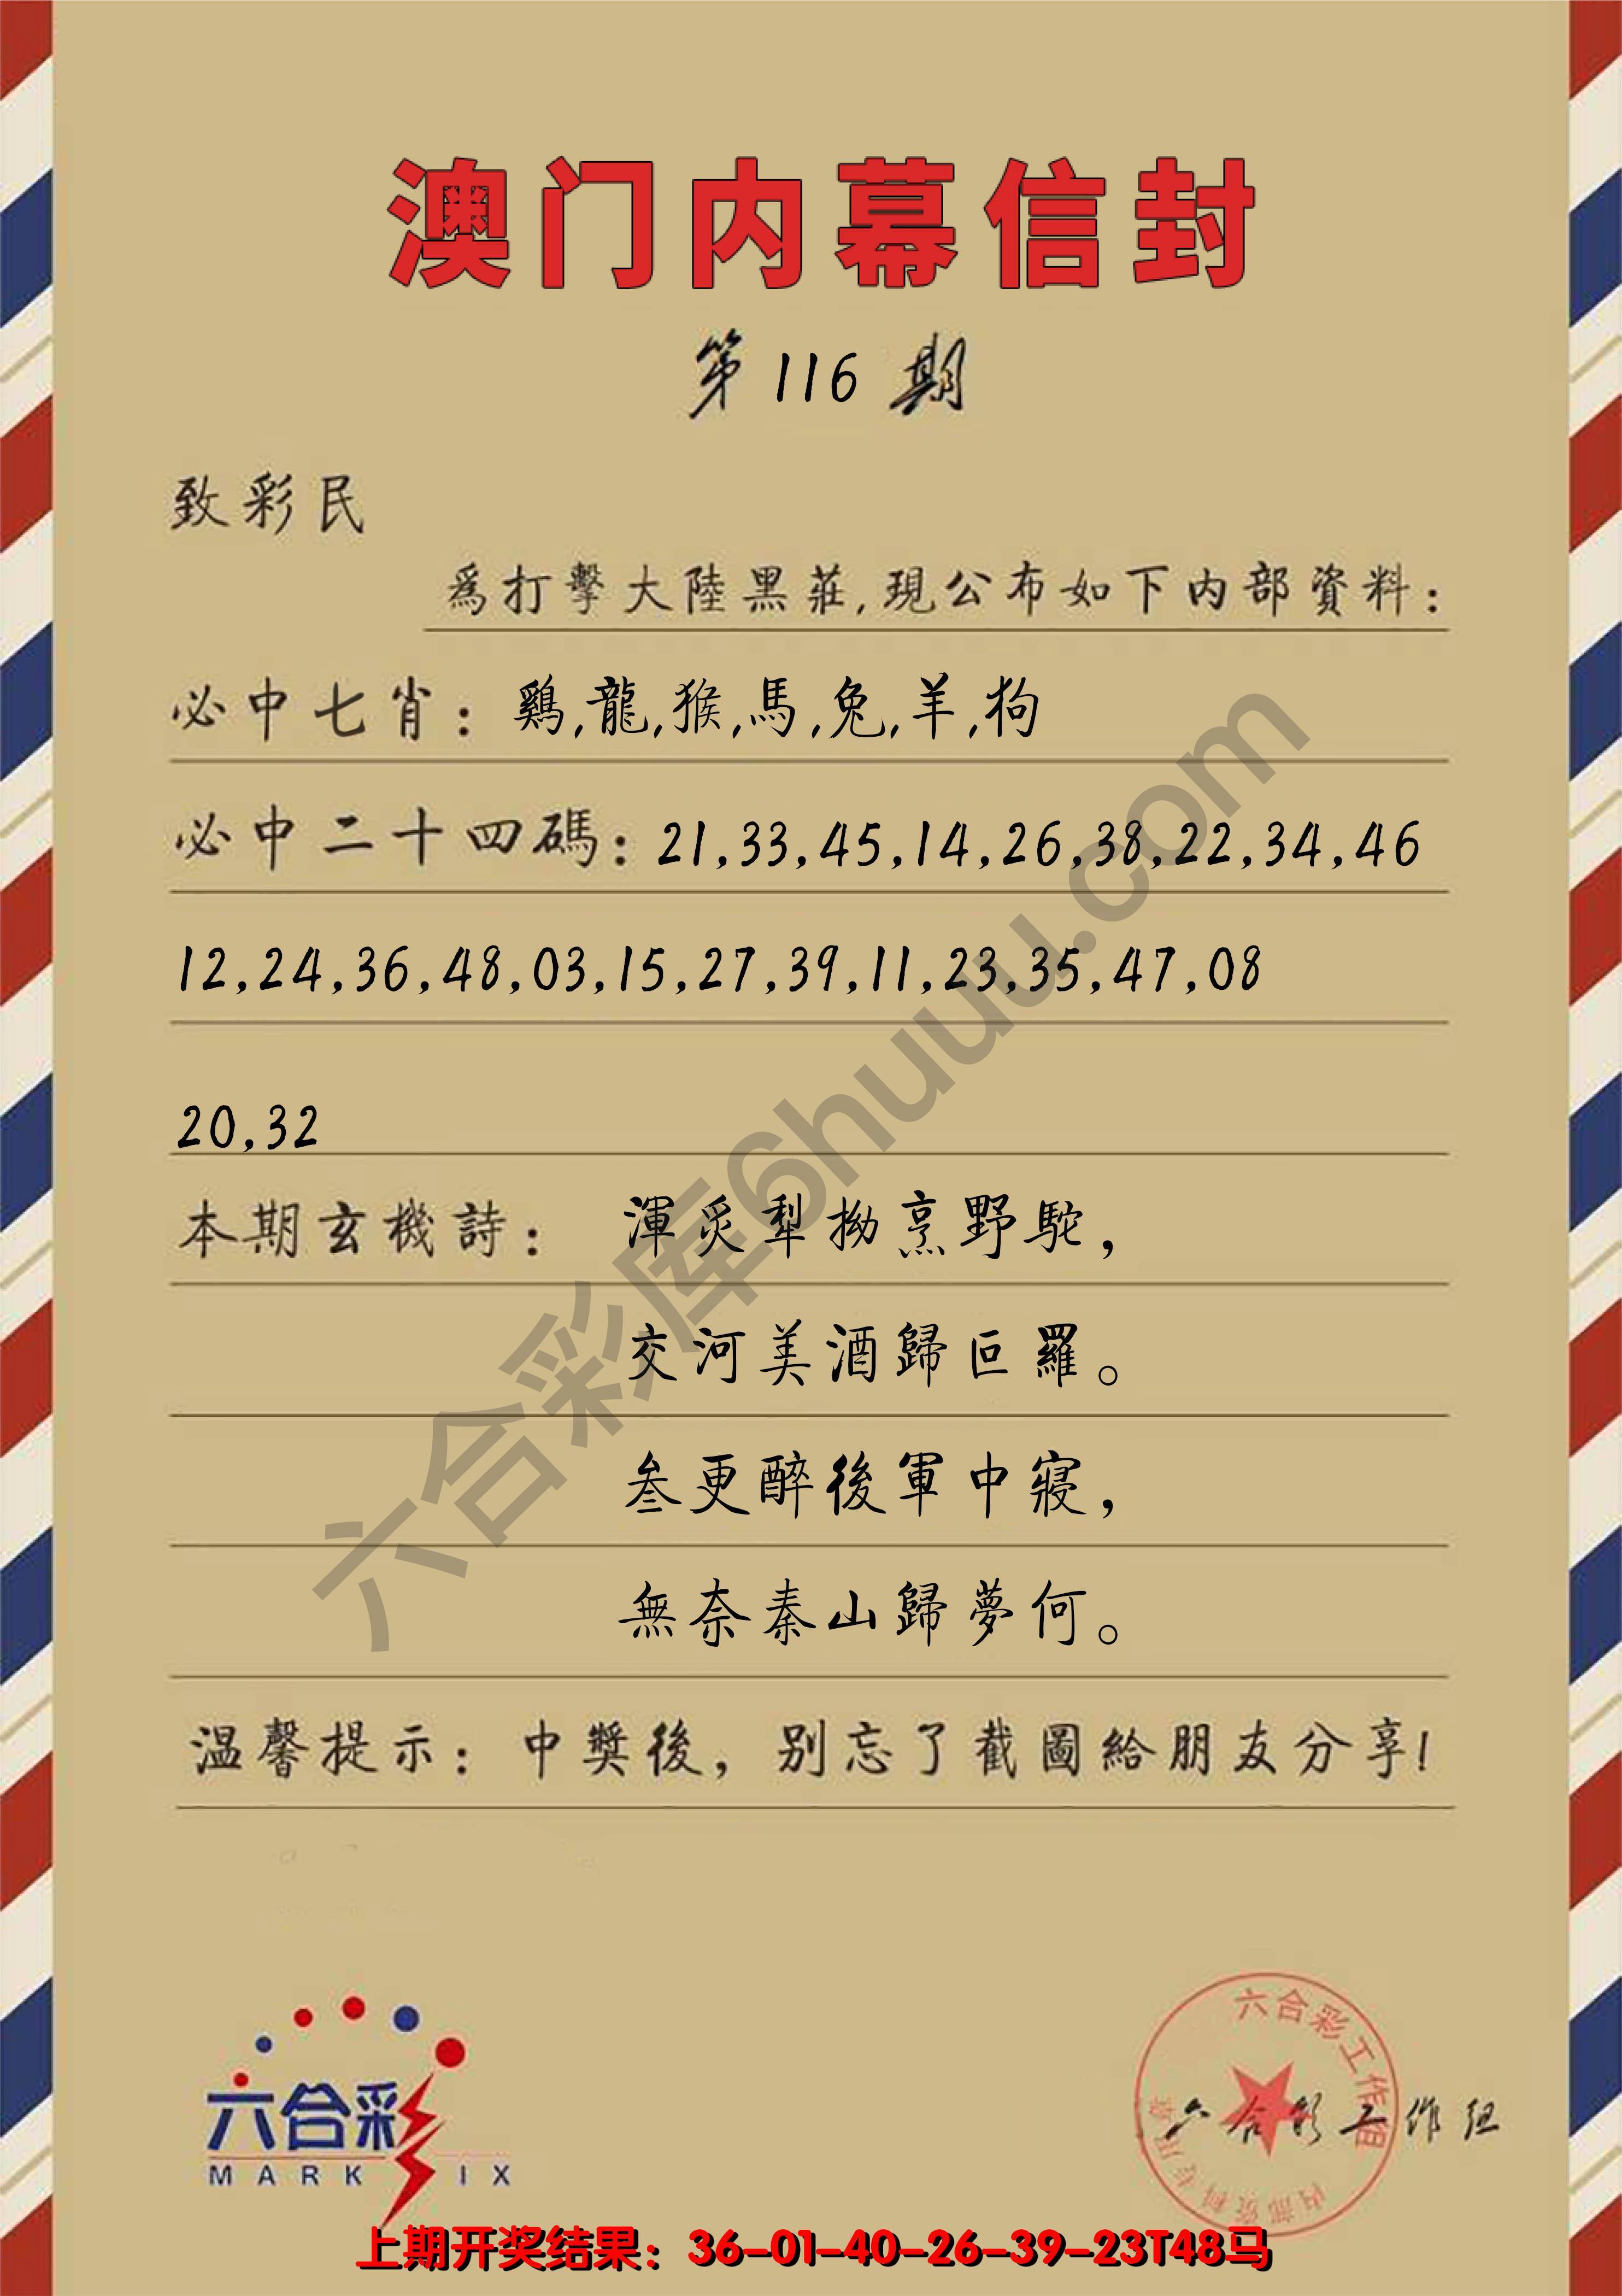 澳门内幕信封
第 116 期
致彩民
為打擊大陸黑莊,現公布如下内部資料:
必中七肖: 鷄,龍,猴,馬,兔,羊,狗
必中二十四碼: 21,33,45,14,26,38,22,34,46
12,24,36,48,03,15,27,39,11,23,35,47,08
20,32
本期玄機詩: 渾炙犁拗烹野駝,
交河美酒歸叵羅。
叁更醉後軍中寢,
無奈秦山歸夢何。
温馨提示: 中獎後, 别忘了截圖給朋友分享!
六合彩库6huuu.com
六合彩
MARK IX
六合彩工作组
内部资料专用章
六合彩工作组
上期开奖结果: 36-01-40-26-39-23T48马